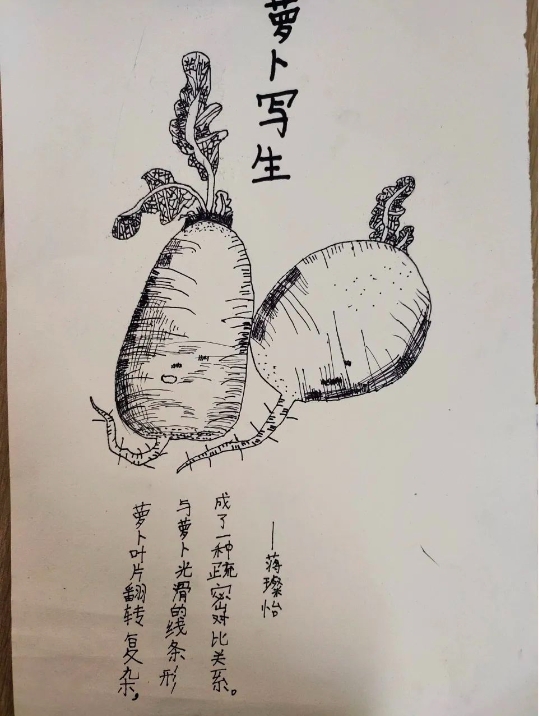 萝卜写生
萝卜叶片翻转复杂，
与萝卜光滑的线条形
成了一种疏密对比关系。
——薄璨怡